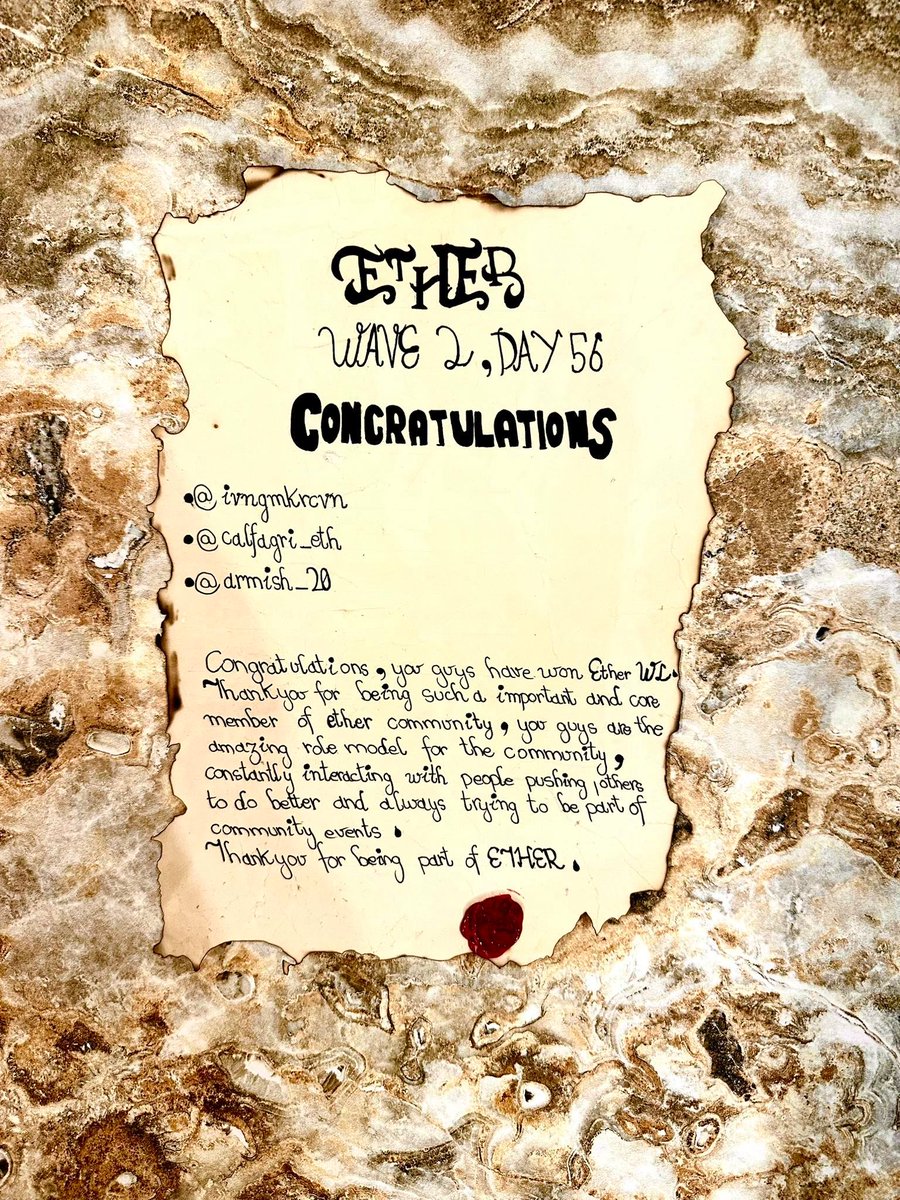 ETHER
WAVE 2, DAY 56
CONGRATULATIONS
•@ivngmkrcvn
•@calfagri_eth
•@armish_20
Congratulations, you guys have won Ether WL.
Thankyou for being such a important and core
member of ether community, you guys are the
amazing role model for the community,
constantly interacting with people pushing, others
to do better and always trying to be part of
community events.
Thankyou for being part of ETHER.